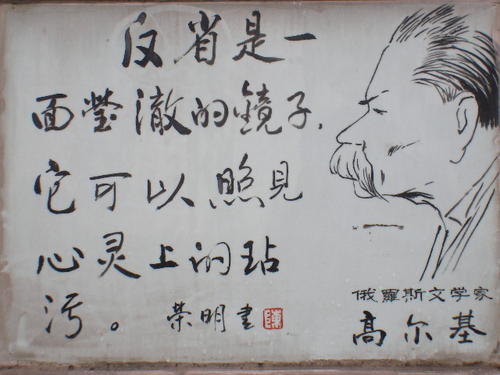 反省是一
面莹澈的镜子,
它可以照見
心灵上的玷
污。 荣明書 陳
俄羅斯文学家
高尔基